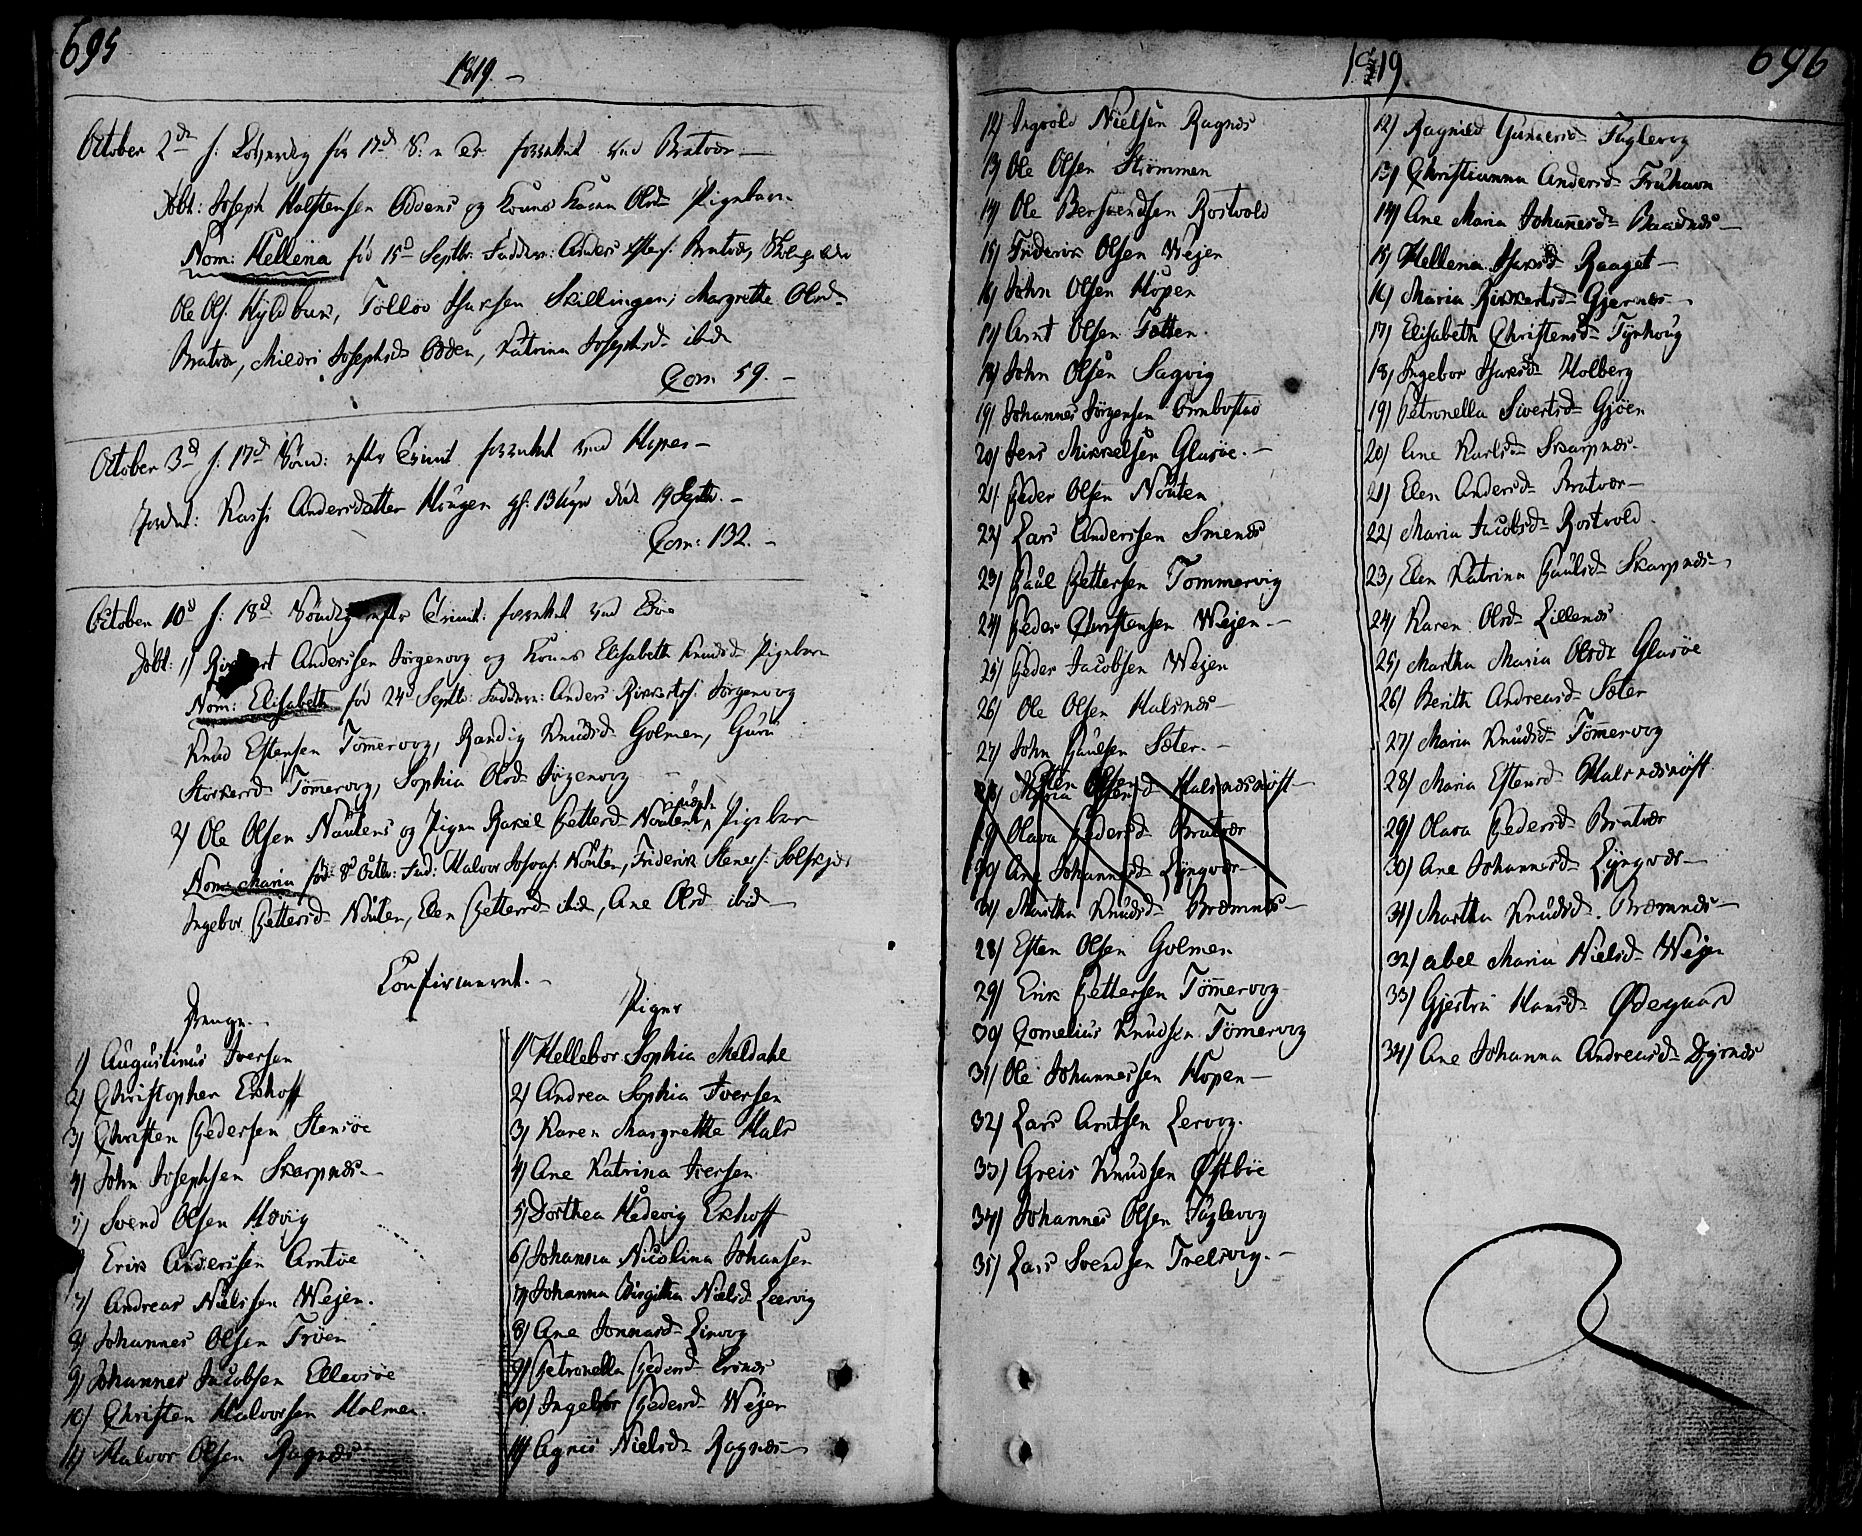 695
1819. -
October 2de f: Løverdag for 17d S. n Tr. forrettet ved Bratvær -
Døbt: Joseph Halstensen Oddens og Kones Karen Olsd Pigebarn
Nom: Hellena fød 15d Septbr: Faddere: Anders Bratvær,
Ole Ols. Hyldbux, Tollov Isaksen Skillingen, Margrethe Olsd
Bratvær, Mildri Josephsd Odden, Katrina Josephsd ibid
Com 59. -
October 3d f: 17d Sønd: efter Trinit forrettet ved Hopen -
Jordet: Kassi Andersdatter Hougen gl: 13 Uger død 19 Septbr. -
Com: 132. -
October 10d f: 18d Søndag efter Trinit: forrettet ved Böe
Døbt: 1) Rikkert Anderssen Jørgenvog og Kones Elisabeth Knudsd Pigebarn
Nom: Elisabeth fød 24d Septbr: Faddere: Anders Rikkertss: Jørgenvog
Knud Estensen Tømmervog, Randig Knudsd Golmen, Guru
Storkersd Tømmervog, Sophia Olsd Jørgenvog
2) Ole Olsen Noutens og Pigen Rakel Pettersd Nouten Pigebarn
Nom: Maria fød: 8d Octbr: Fad: Halvor Nouten, Friderik Steners: Solskjær
Ingebor Pettersd Nouten, Elen Pettersd ibid, Ane Olsd ibid -
Confirmeret. -
Drenge. -
1) Augustinus Iversen
2) Christopher Ekhoff
3) Christen Pedersen Stensöe
4) John Josephsen Skarpnæs -
5) Svend Olsen Hövig
Erik Anderssen Arntöe
7) Andreas Nielssen Wejen.
8) Johannes Olsen Tröen
9) Johannes Jacobsen Ellevsöe
10) Christen Halvorsen Holmen.
11) Halvor Olsen Ragnæs
Piger
1) Hellebor Sophia Meldahl
2) Andrea Sophia Iversen
3) Karen Margrethe Hals
4) Ane Katrina Iversen
5) Dorthea Hedevig Ekhoff
6) Johanna Nicolina Johansen
7) Johanna Birgitha Nielsd Leervig
8) Ane Jonnasd Lirvog
9) Petronella Pedersd Ersnæs
10) Ingebor Pedersd Wejen
11) Agnis Nielsd Ragnæs -
1819
696
12) Ingvold Nielsen Ragnæs
13) Ole Olsen Strømmen
14) Ole Bersvendsen Rostvold
15) Friderik Olsen Wejen
16) John Olsen Hopen
17) Arnt Olsen Tetten
18) John Olsen Sagvig
19) Johannes Jörgensen Ormbostad
20) Jens Mikkelsen Glasöe. -
21) Peder Olsen Nouten
22) Lars Anderssen Smenes
23) Paul Pettersen Tommervig
24) Peder Christensen Wejen. -
25) Peder Jacobsen Wejen
26) Ole Olsen Halsnæs -
27) John Paulsen Sæter. -
28) Maria Estensd Halsnæsnöst -
29) Olava Pedersd Bratvær
30) Ane Johannesd Lyngvær -
31) Martha Knudsd Bræmnes -
28) Esten Olsen Golmen
29) Erik Pettersen Tömmervog
30) Cornelius Knudsen Tömmervog
31) Ole Johannessen Hopen -
32) Lars Arntsen Lervog.
33) Greis Knudsen Østböe
34) Johannes Olsen Fuglevog
35) Lars Svendsen Trelsvig. -
12) Ragnild Gunnersd Fuglevog
13) Christianna Andersd Fruhavn
14) Ane Maria Johannesd Baadnæs -
15) Hellena Isaksd Raaget -
16) Maria Rikkertsd Gjernæs -
17) Elisabeth Christensd Tyrhoug
18) Ingebor Isaksd Holberg
19) Petronella Sivertsd Gjöen
20) Ane Karlsd Skarpnæs.
21) Elen Andersd Bratvær -
22) Maria Jacobsd Rostvold.
23) Elen Katrina Paulsd Skarpnæs -
24) Karen Olsd Lillenæs
25) Martha Maria Olsdr Glasöe
26) Berith Andreasd Sæter
27) Maria Knudsd Tömmervog
28) Maria Estensd Halsnæsnöst
29) Olava Pedersd Bratvær
30) Ane Johannesd Lyngvær -
31) Martha Knudsd. Bræmnes -
32) Abel Maria Nielsd Wejen
33) Gjertru Hansd Ødegaard
34) Ane Johanna Andreasd Dyrnæs